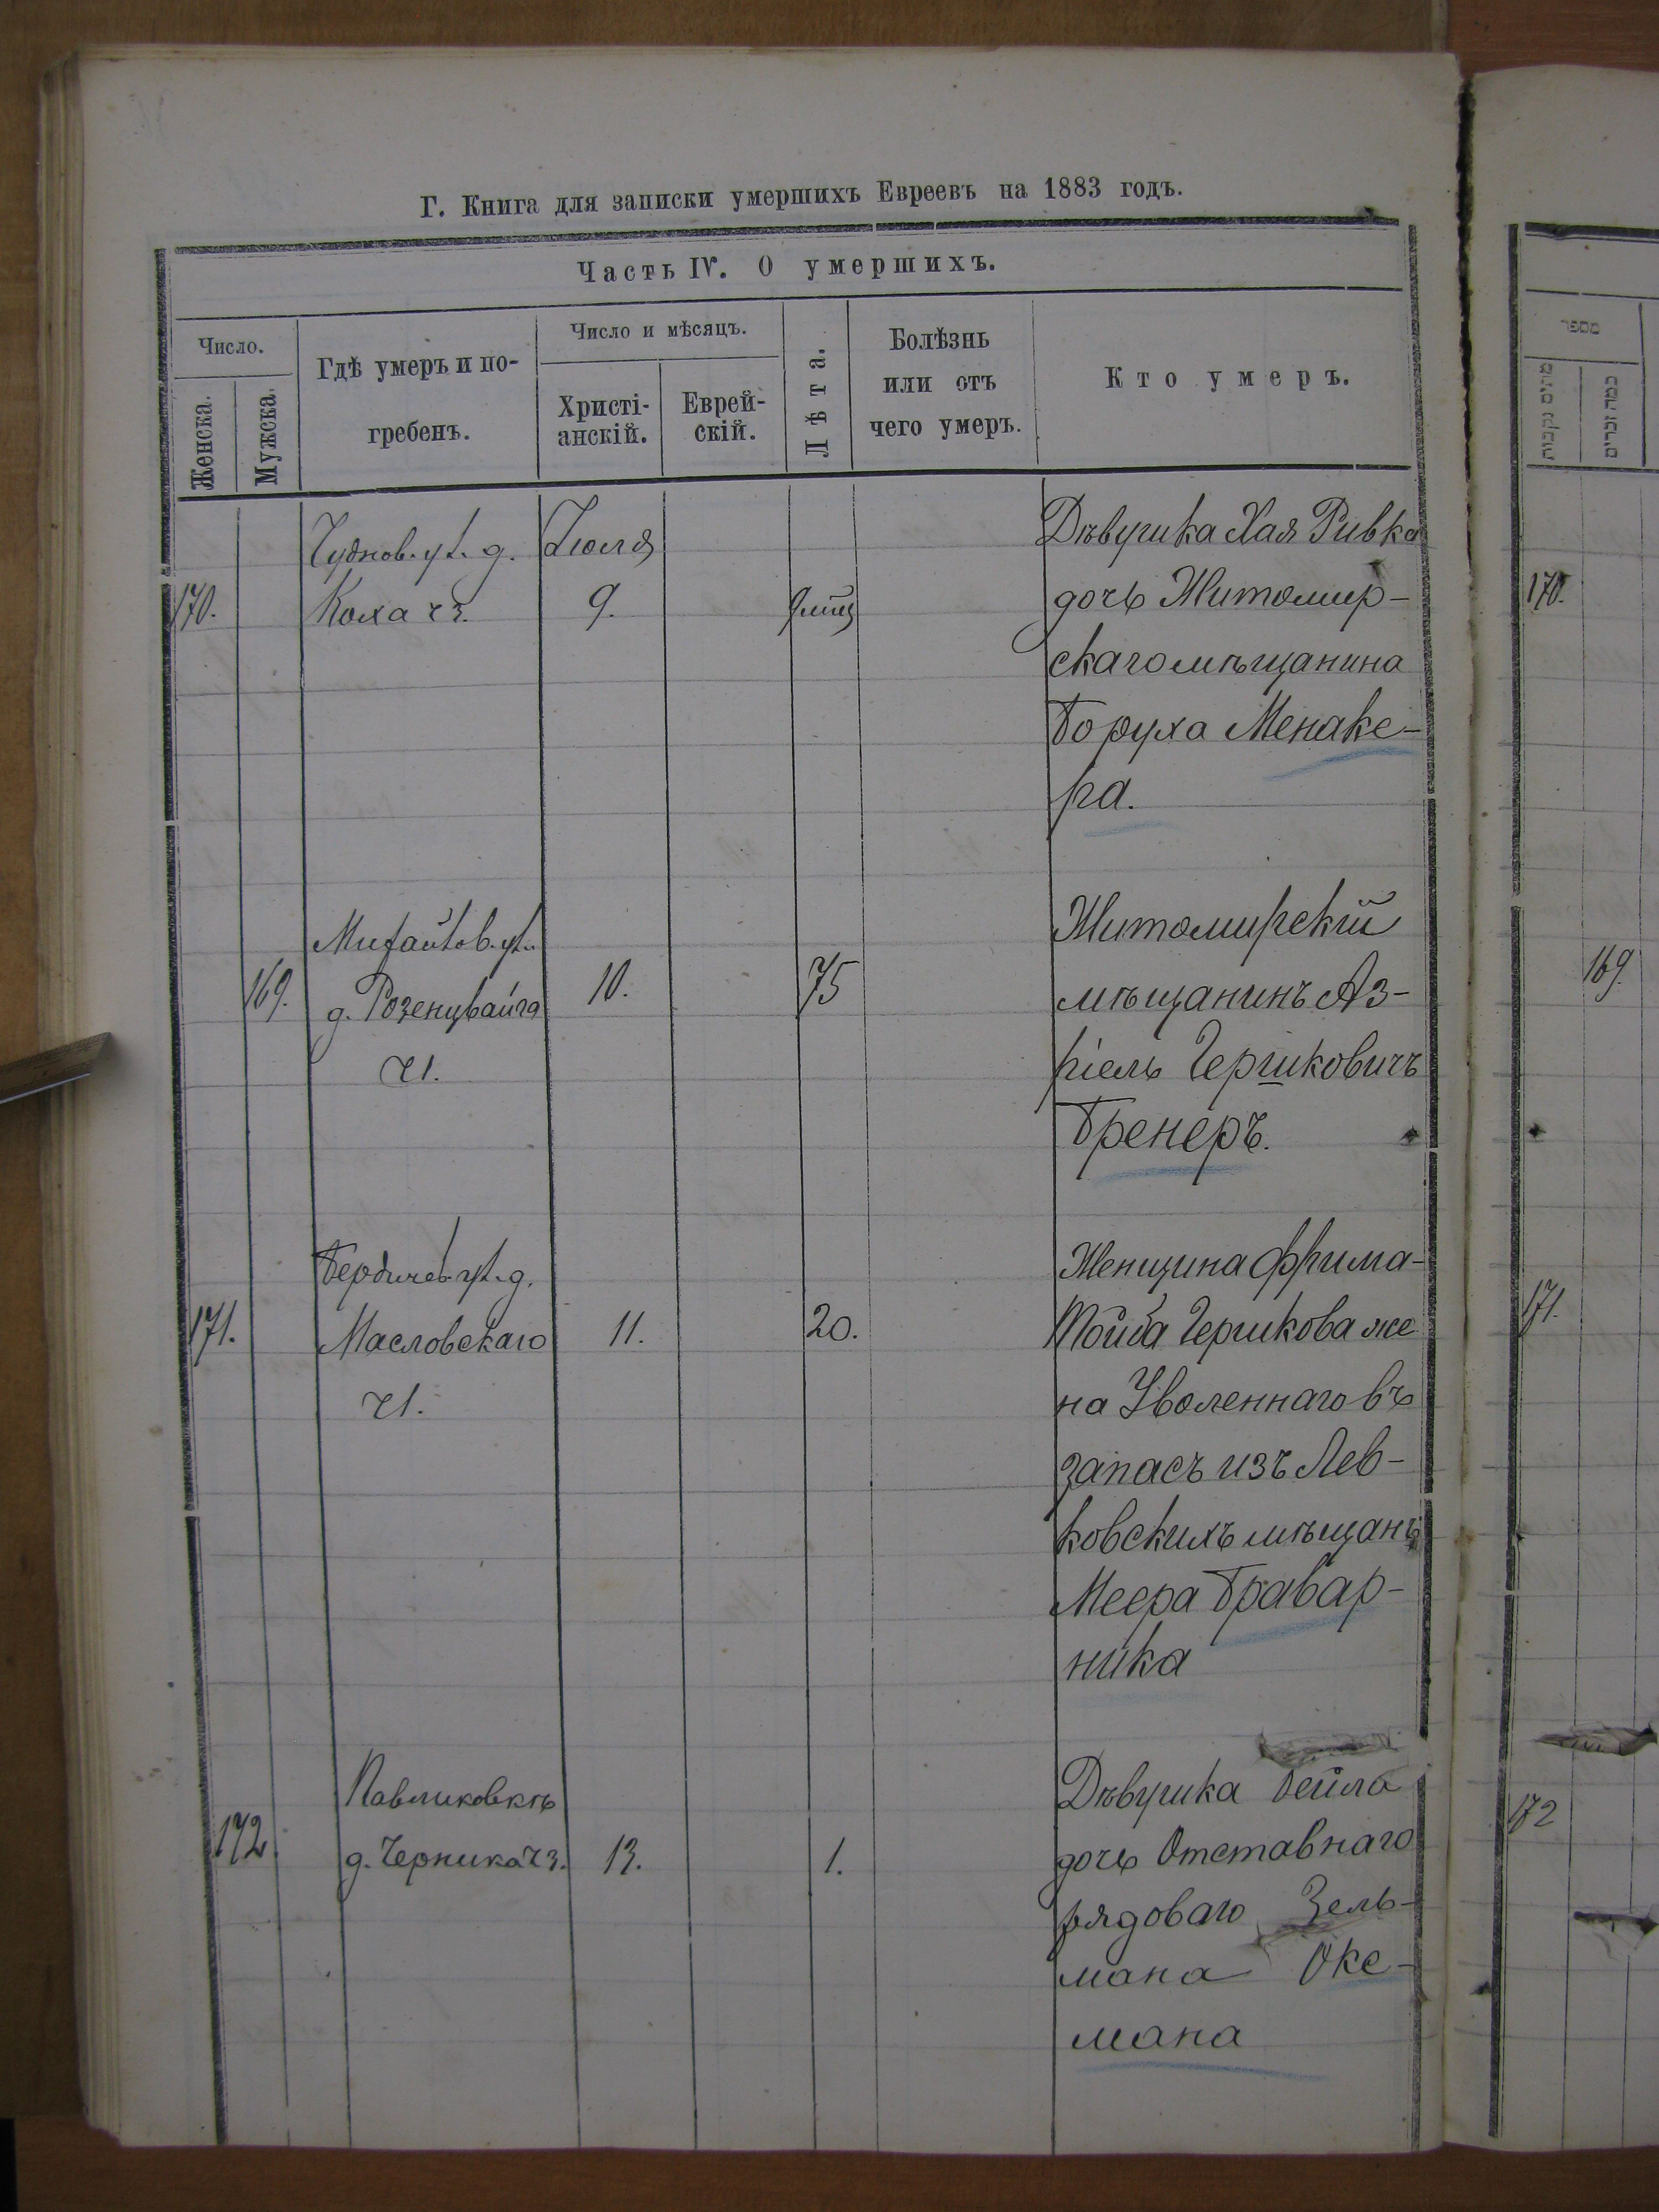 Г. Книга для записки умершихъ Евреевъ на 1883 годъ.
Часть IV. О умершихъ.
Число.
Женска.
Мужска.
Гдѣ умеръ и по-
гребенъ.
Число и мѣсяцъ.
Христі-
анскій.
Еврей-
скій.
Лѣта.
Болѣзнь
или отъ
чего умеръ.
Кто умеръ.
170.
Чуднов. ул. д.
Коха ч3.
Іюля
9.
Дѣвушка Хая Ривка
дочь Житомир-
скаго мѣщанина
Боруха Менаке-
ра.
169.
Михайлов. ул.
д. Розенцвайга
ч1.
10.
75
Житомирскій
мѣщанинъ Аз-
ріель Гершковичъ
Бренеръ.
171.
Бердичев. ул. д.
Масловскаго
ч1.
11.
20.
Женщина Фрима-
Тойба Гершкова же
на Уволеннаго въ
запасъ изъ Лев-
ковскихъ мѣщанъ
Меера Бравар-
ника
172.
Павликовкѣ
д. Черника ч3.
13.
1.
Дѣвушка Бейла
дочь Отставнаго
рядоваго Зель-
мана Оке-
мана
מספר
כמה זכרים
170.
169.
171.
172